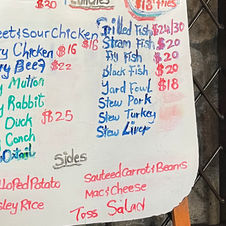 Lunches
eet & Sour Chicken
ry Chicken $16
ry Beef $22
y Mutton
y Rabbit
Duck $25
y Conch
Oxtail
$16
$18 fries
Grilled Fish $24/30
Steam Fish $20
Fry Fish $20
black Fish $20
Yard Fowl $18
Stew Pork
Stew Turkey
Stew Liver
Sides
Potato
sley Rice
Sauteed Carrot & Beans
Mac & Cheese
Toss Salad